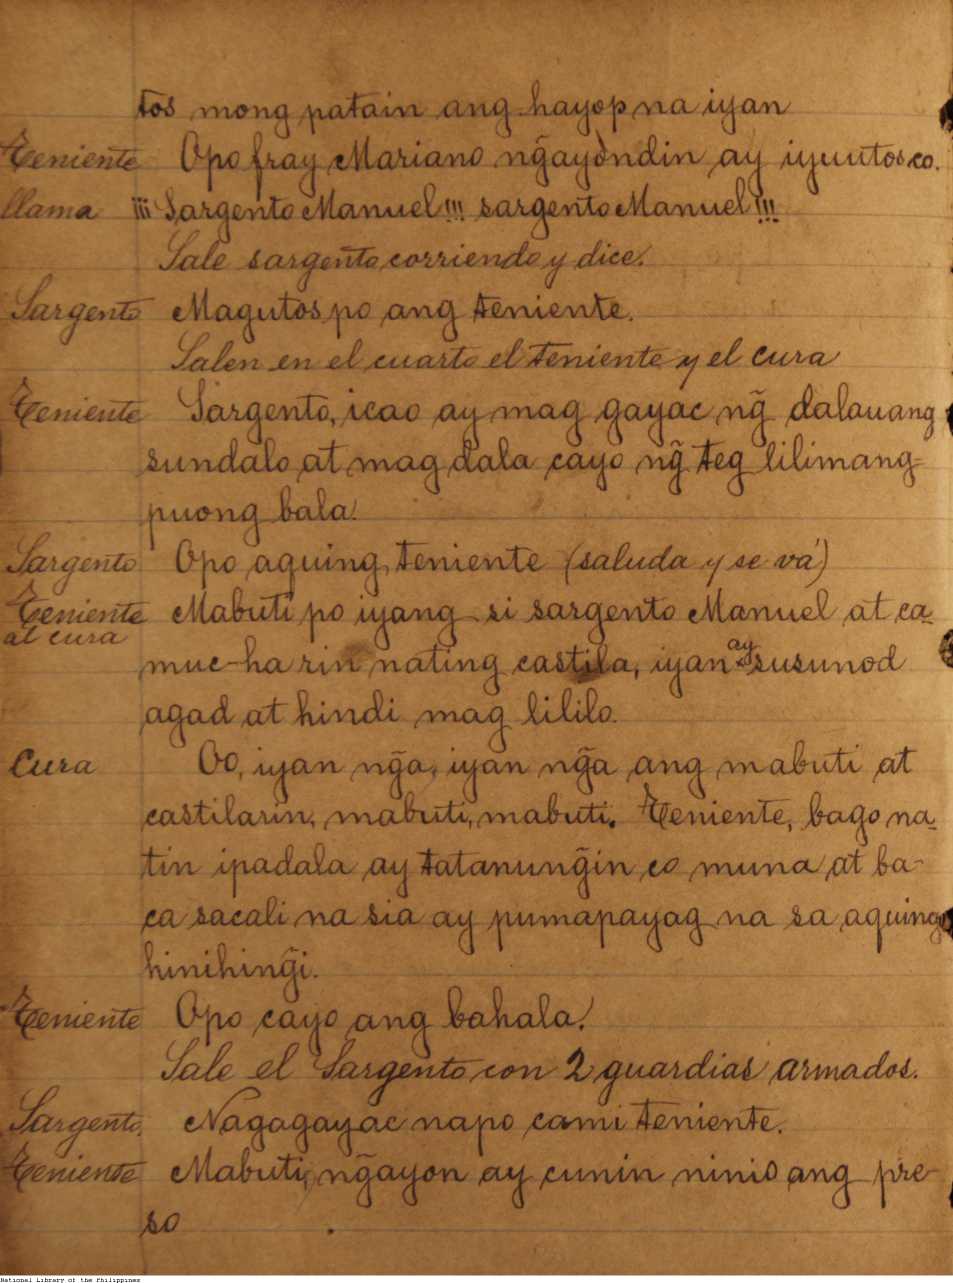 tos mong patain ang hayop na iyan
Teniente Opo fray Mariano ng̃ayondin ay iyuutos co.
llama ¡¡¡Sargento Manuel!!! sargento Manuel!!!
Sale sargento corriendo y dice.
Sargento Magutos po ang teniente.
Salen en el cuarto el teniente y el cura
Teniente Sargento, icao ay mag gayac ng̃ dalauang
sundalo at mag dala cayo ng̃ teg lilimang=
puong bala.
Sargento Opo aquing teniente (saluda y se vá)
Teniente Mabuti po iyang si sargento Manuel at ca-
at cura
muc-ha rin nating castila, iyan ay susunod
agad at hindi mag lililo.
Cura Oo, iyan ng̃a, iyan ng̃a ang mabuti at
castilarin, mabuti, mabuti. Teniente, bago na-
tin ipadala ay tatanung̃in co muna at ba-
ca sacali na sia ay pumapayag na sa aquing
hinihing̃i.
Teniente Opo cayo ang bahala.
Sale el Sargento con 2 guardias armados.
Sargento. Nagagayac napo cami teniente.
Teniente Mabuti, ng̃ayon ay cunin ninio ang pre-
so
National Library of the Philippines